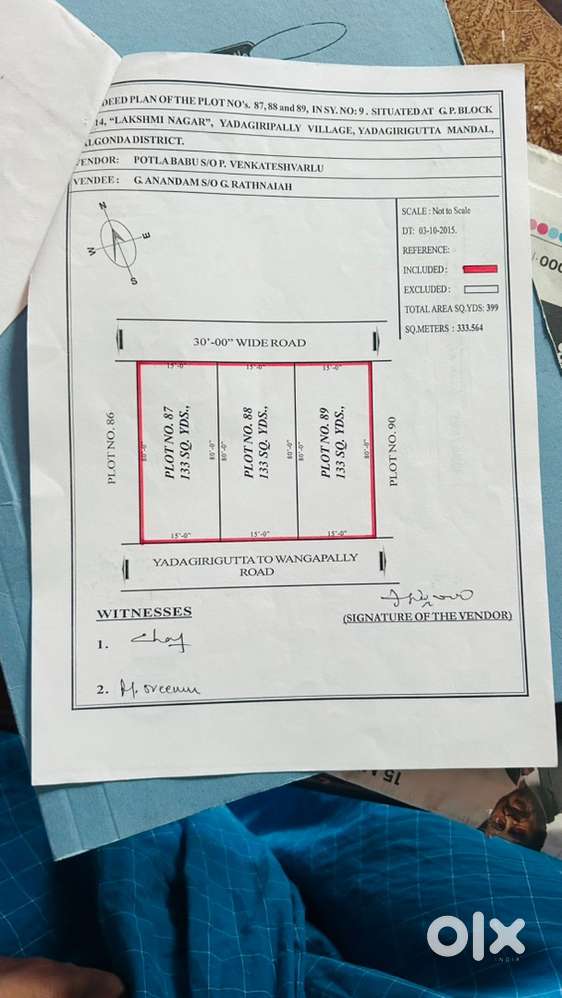 DEED PLAN OF THE PLOT NO's. 87, 88 and 89, IN SY. NO: 9. SITUATED AT G.P. BLOCK
14, "LAKSHMI NAGAR", YADAGIRIPALLY VILLAGE, YADAGIRIGUTTA MANDAL,
ALGONDA DISTRICT.
VENDOR: POTLA BABU S/O P. VENKATESHVARLU
VENDEE: G. ANANDAM S/O G. RATHNAIAH
N
E
W
S
SCALE : Not to Scale
DT: 03-10-2015.
REFERENCE:
INCLUDED:
EXCLUDED:
TOTAL AREA SQ.YDS: 399
SQ.METERS : 333.564
30'-00" WIDE ROAD
15'-0"
15'-0"
15'-0"
PLOT NO. 86
80'-0"
PLOT NO. 87
133 SQ. YDS.,
80'-0"
80'-0"
PLOT NO. 88
133 SQ. YDS.,
80'-0"
80'-0"
PLOT NO. 89
133 SQ. YDS.,
80'-0"
PLOT NO. 90
15'-0"
15'-0"
15'-0"
YADAGIRIGUTTA TO WANGAPALLY
ROAD
WITNESSES
(SIGNATURE OF THE VENDOR)
1.
2. M. Sreenu
15
olx
INDIA